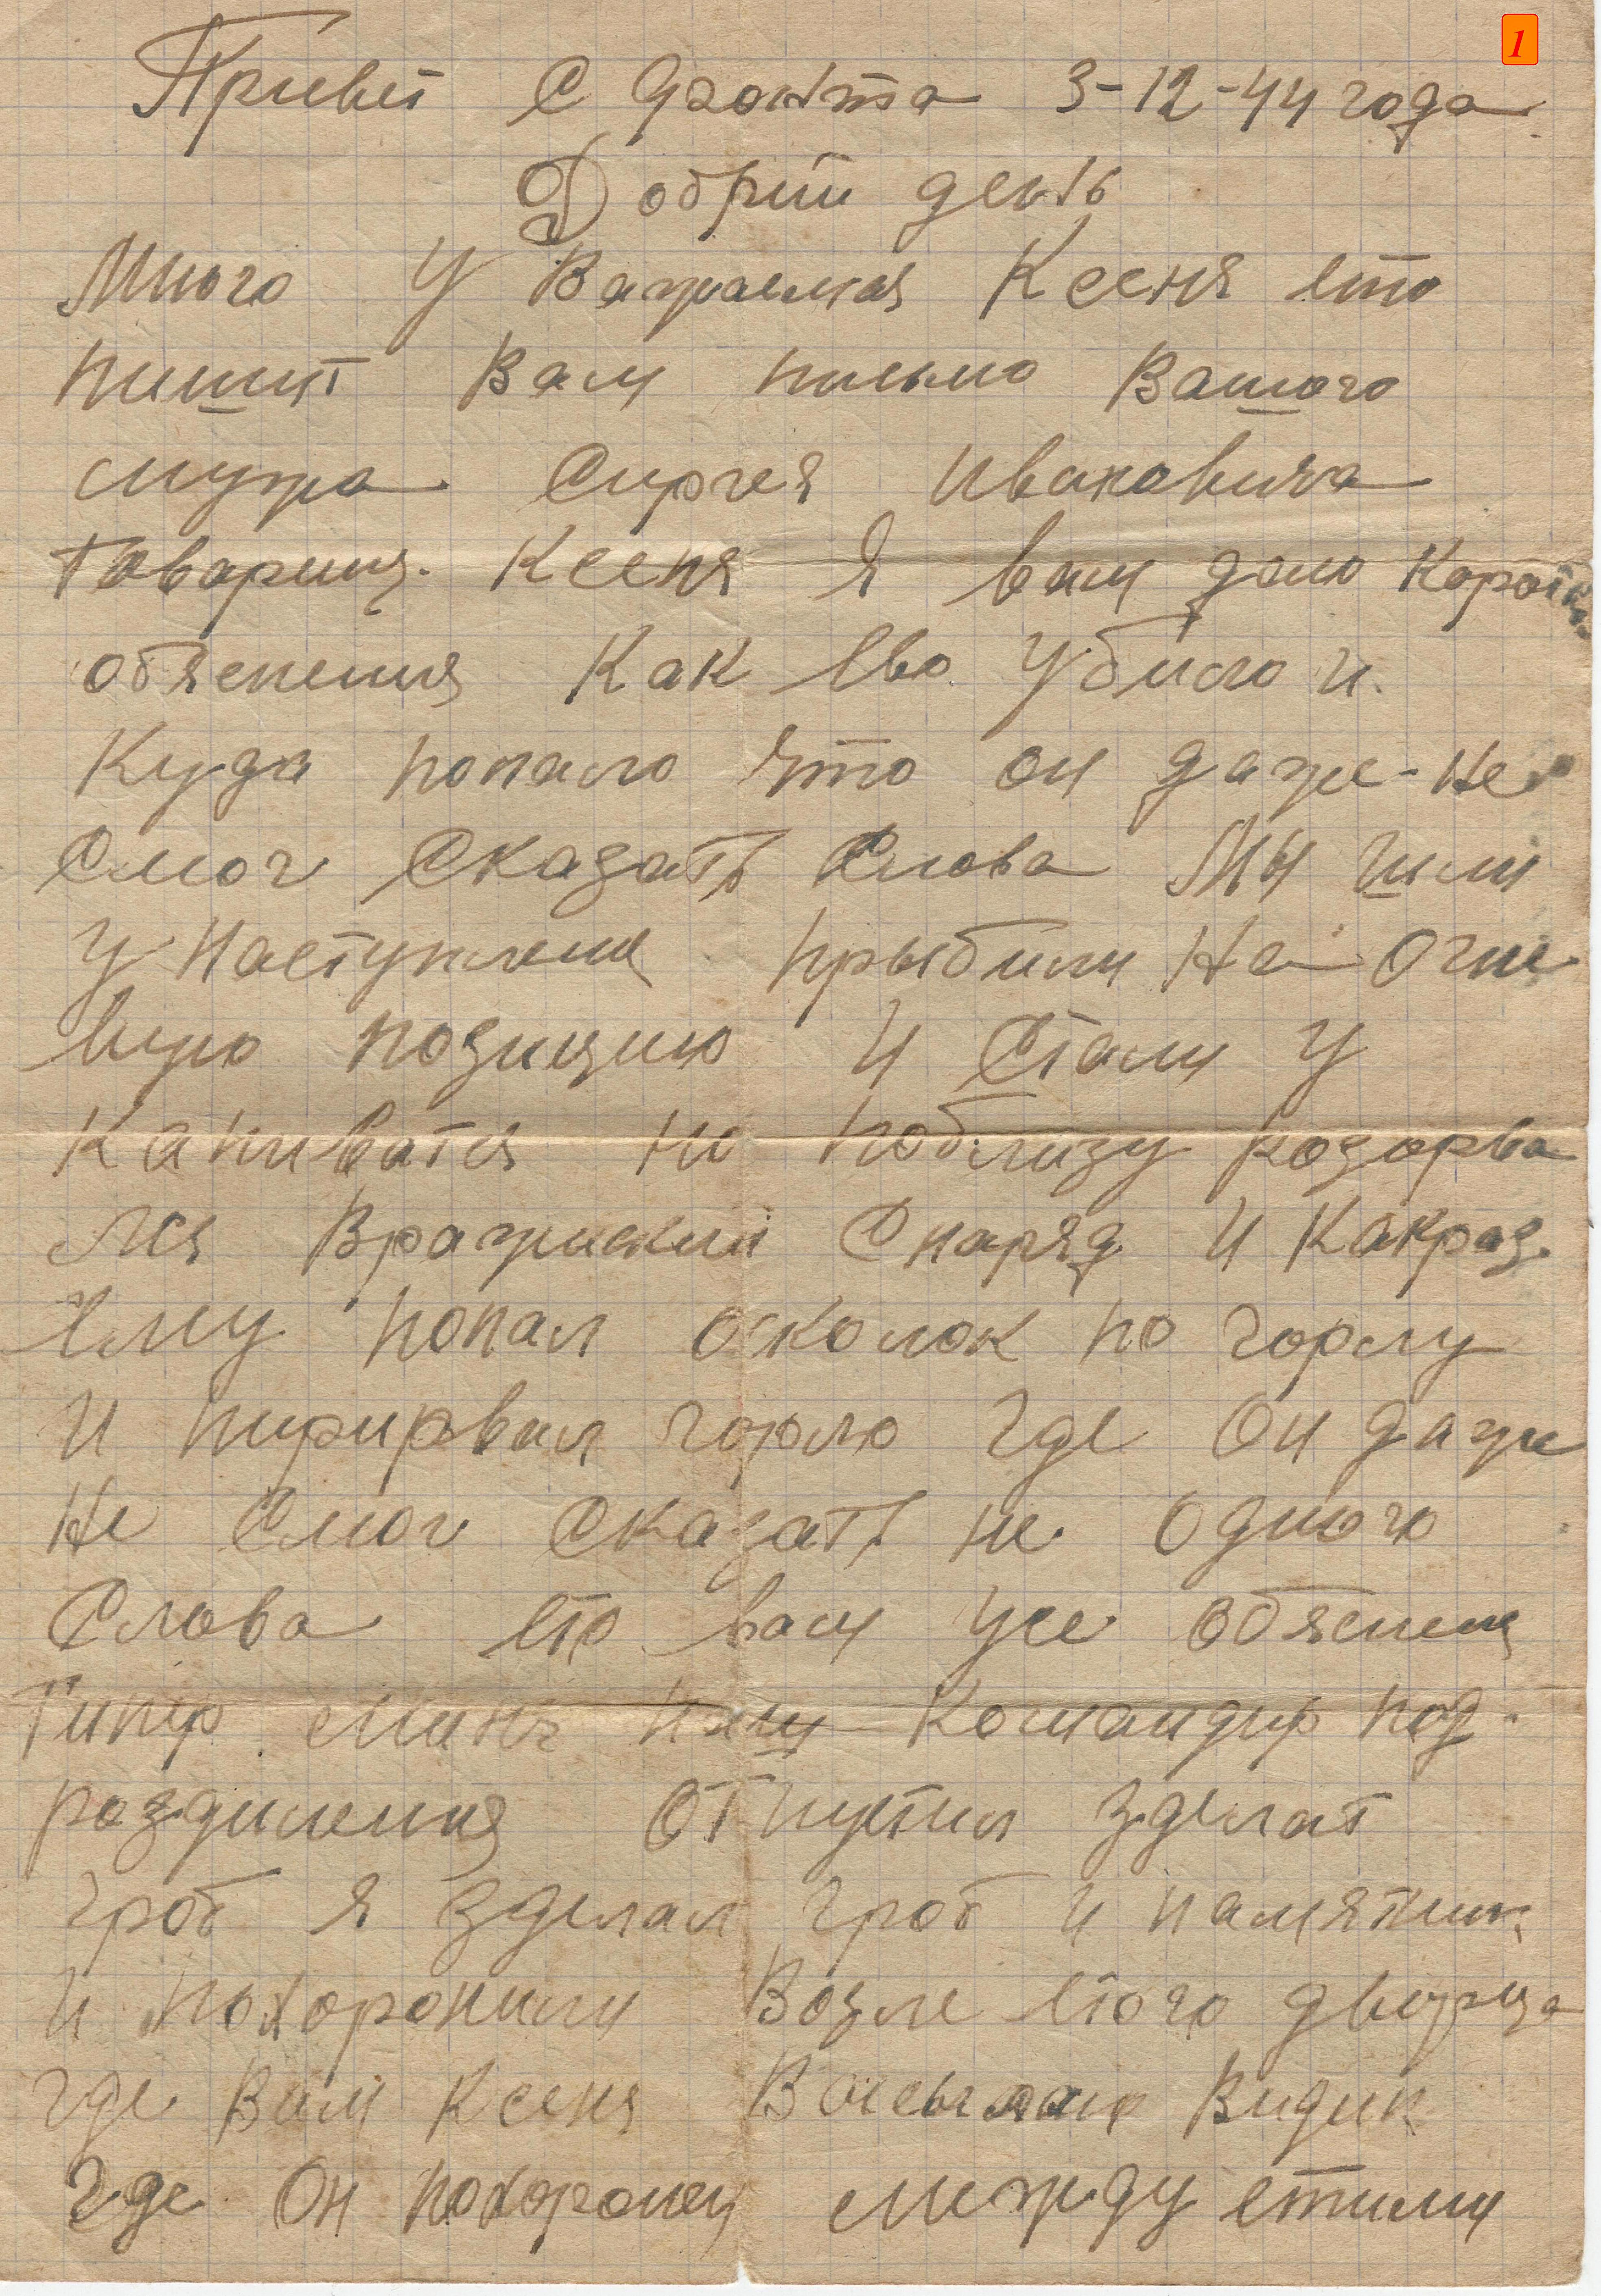 1
Привет с фронта 3-12-44 года
Добрий день
Много У Важаемая Ксеня ето
пишит Вам письмо Вашого
мужа Сиргея Ивановича
товарищ. Ксеня Я вам даю
обяснения Как Ево Убило и
Куда попало что он даже не
Смог Сказать Слова Мы шли
У Наступления прыбили На Огне
вую позицию И Стали У
Капиватся но поблизу розорва
лся Вражиский Снаряд И Какраз
Ему попал осколок по горлу
И пирирвал горло где Он даже
Не Смог Сказать не Одного
Слова Ето вам усе Обяснения
Типер минь наш Командир под
розделения Отпустил Зделат
гроб Я Зделал гроб и памятник
и похоронили Возле Етого дворца
где Вам Ксеня Видик
Где Он похоронен между етими